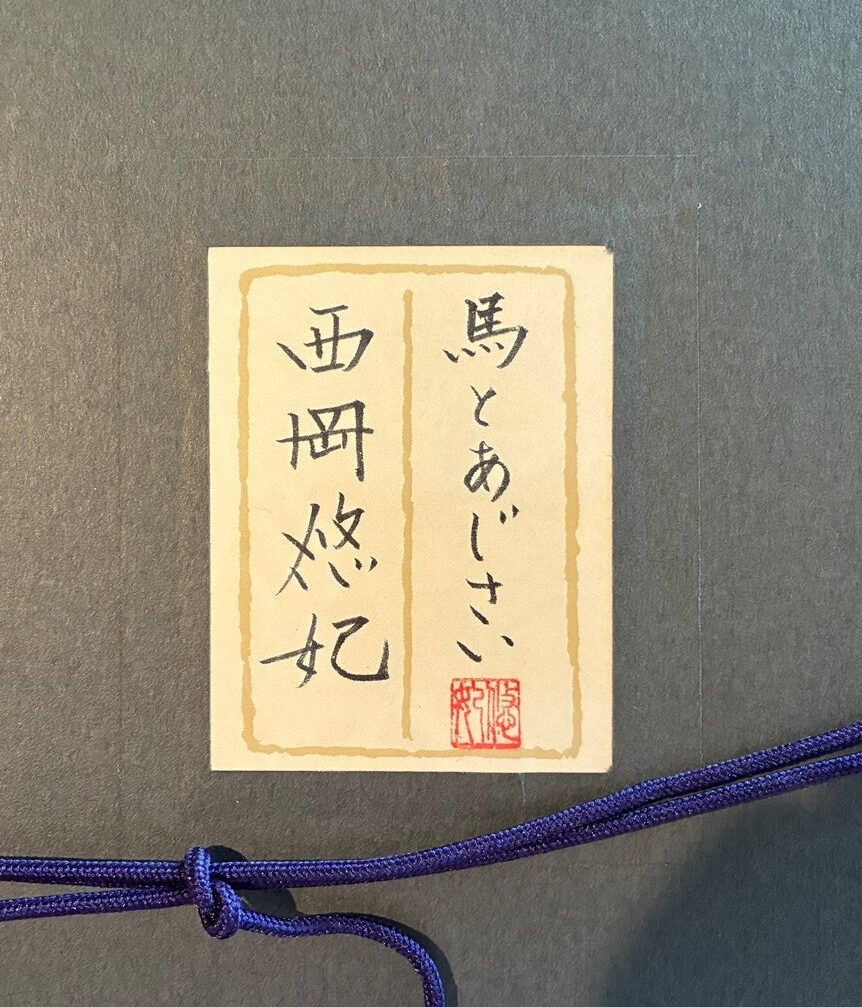 馬とあじさい
西岡悠妃
悠妃